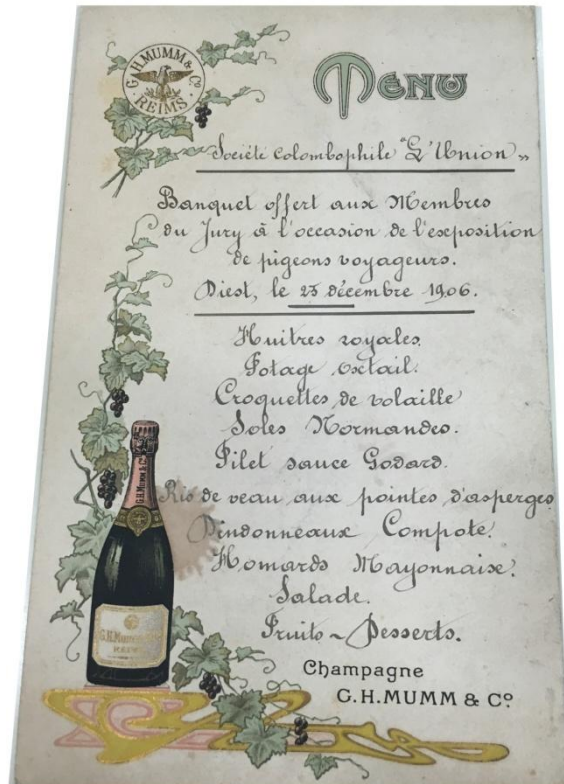 G. H. MUMM & Cº
REIMS
MENU
Société colombophile "L'Union"
Banquet offert aux Membres
du Jury à l'occasion de l'exposition
de pigeons voyageurs.
Diest, le 25 décembre 1906.
Huitres royales.
Potage oxtail.
Croquettes de volaille
Soles Normandes.
Filet sauce Godard.
Ris de veau aux pointes d'asperges
Dindonneaux Compote.
Homards Mayonnaise.
Salade.
Fruits ~ Desserts.
G.H.MUMM & Cº
G.H.Mumm
Champagne
G.H.MUMM & Cº